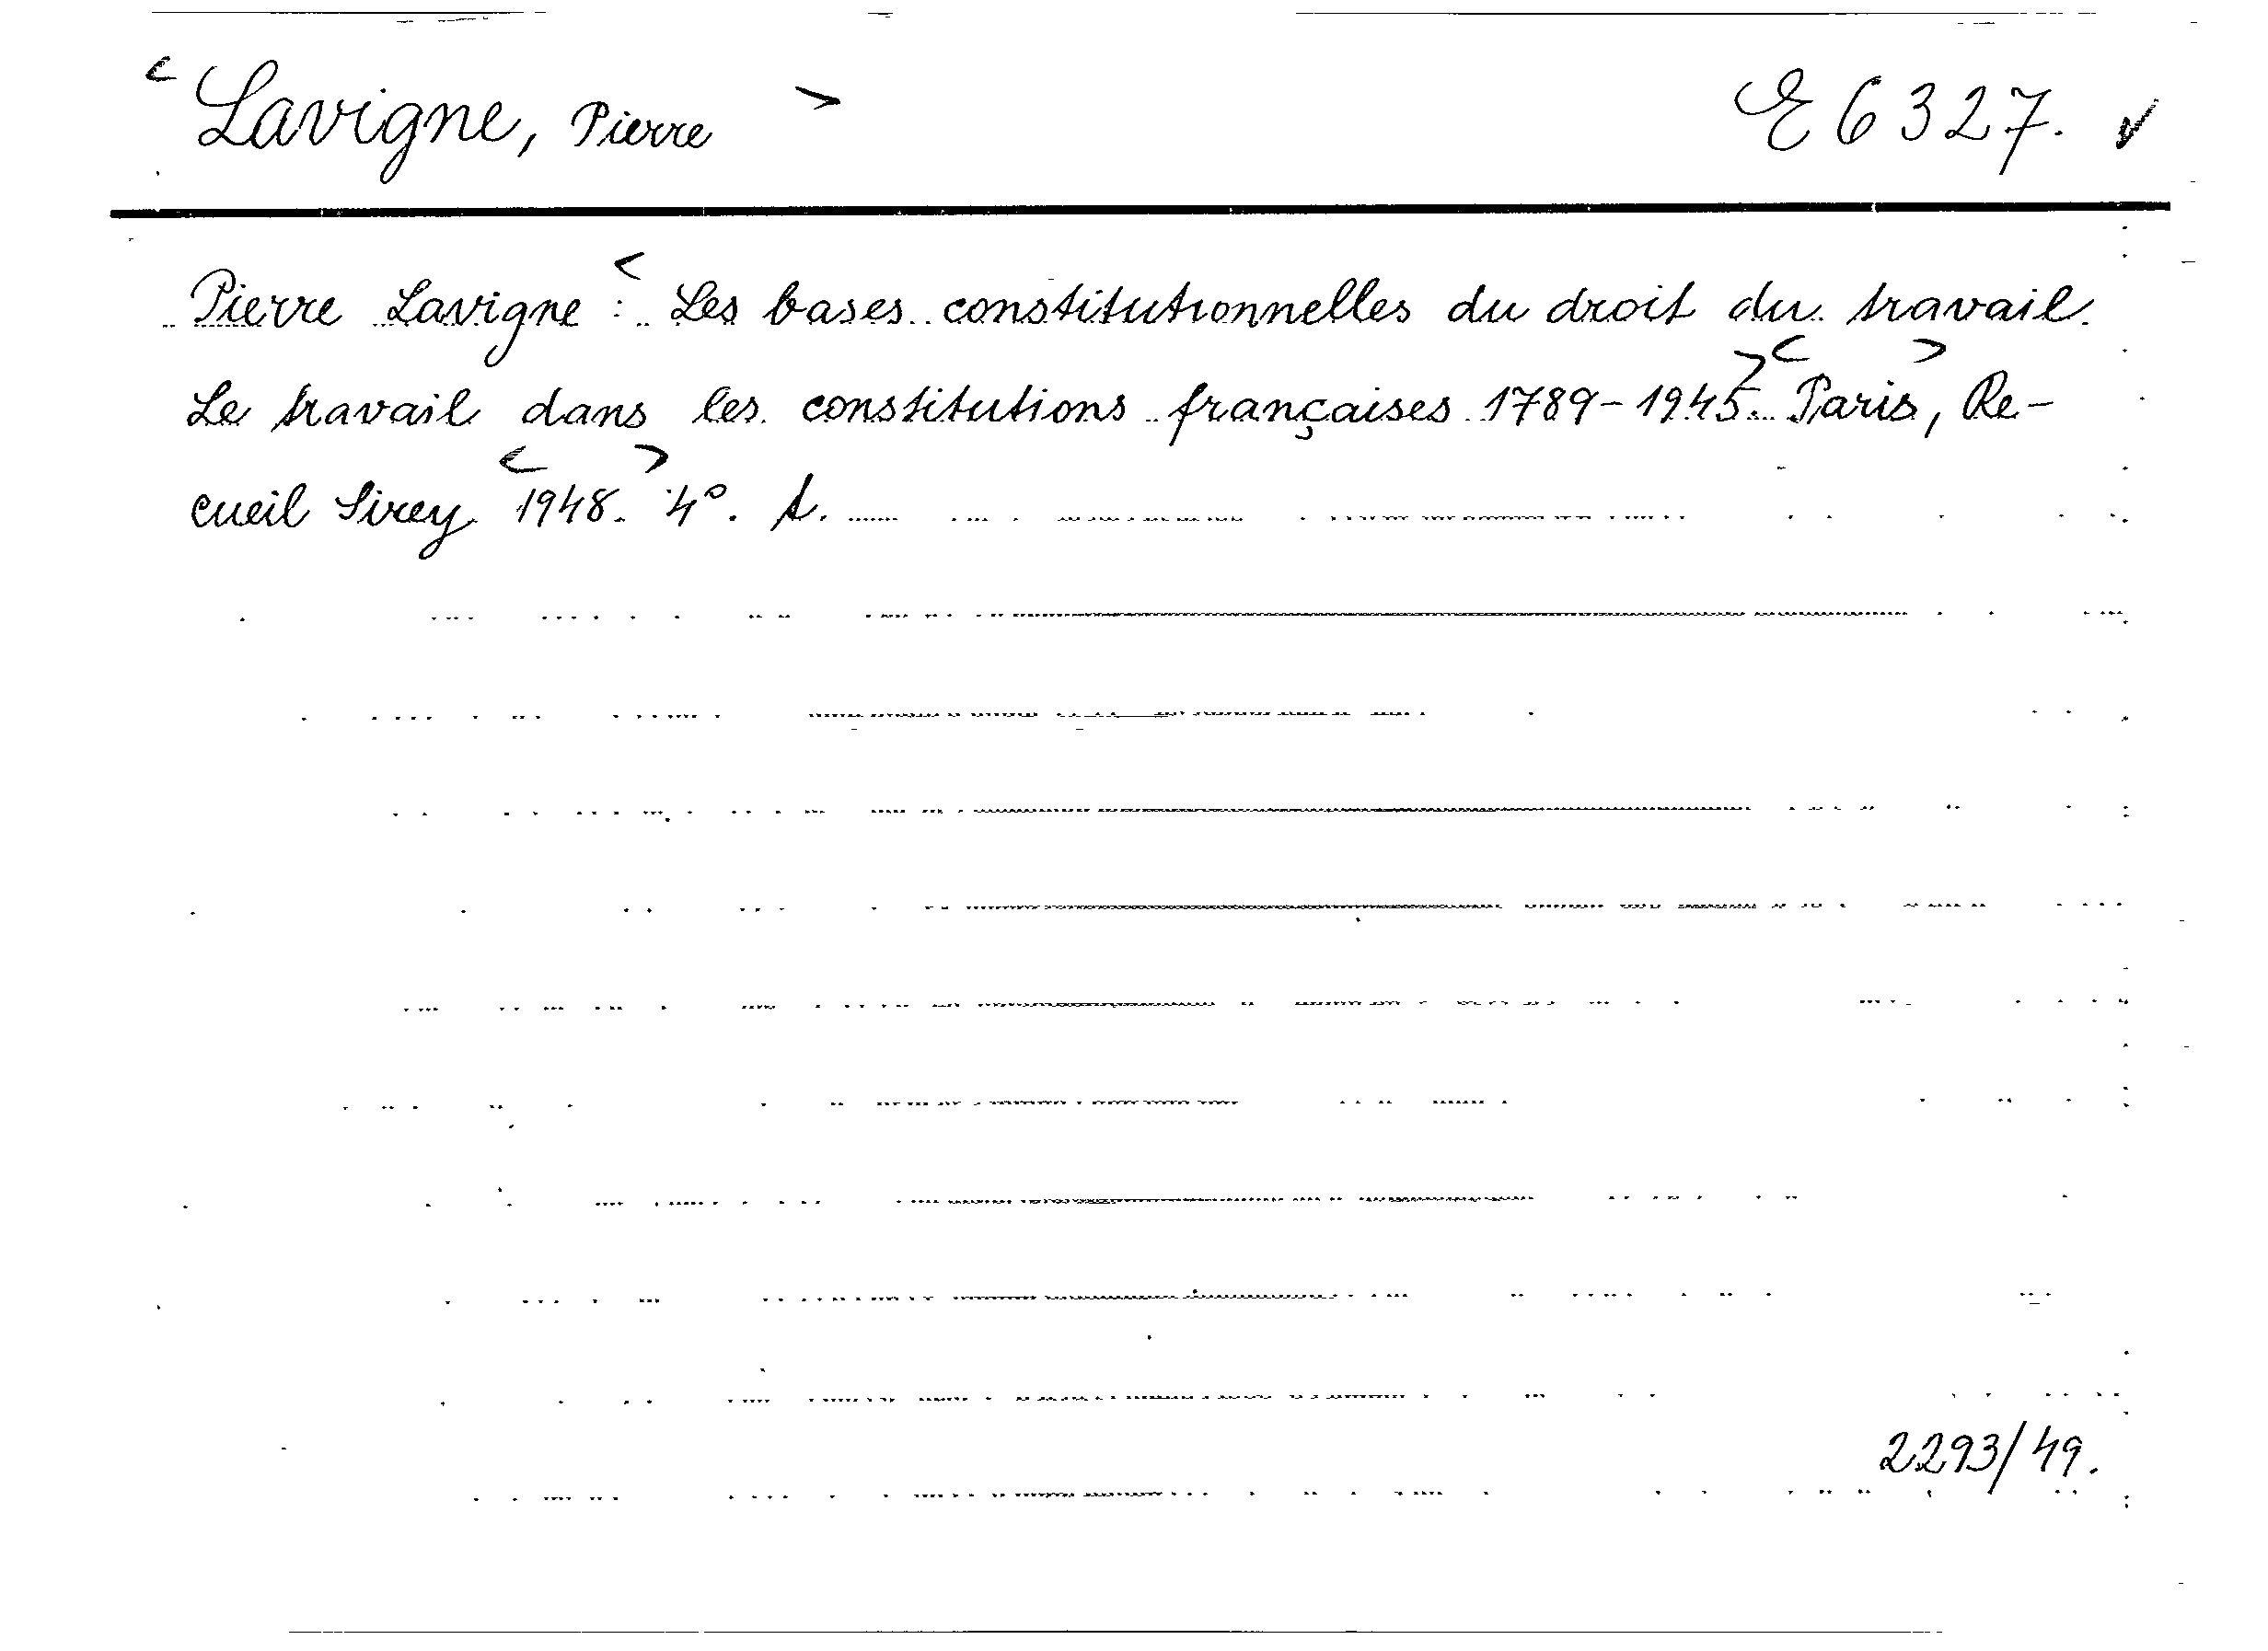 < Lavigne, Pierre > E 6327. ✓
Pierre Lavigne : < Les bases constitutionnelles du droit du travail.
Le travail dans les constitutions françaises 1789-1945. > < Paris >, Re-
cueil Sirey < 1948. > 4°. A.
2293/49.